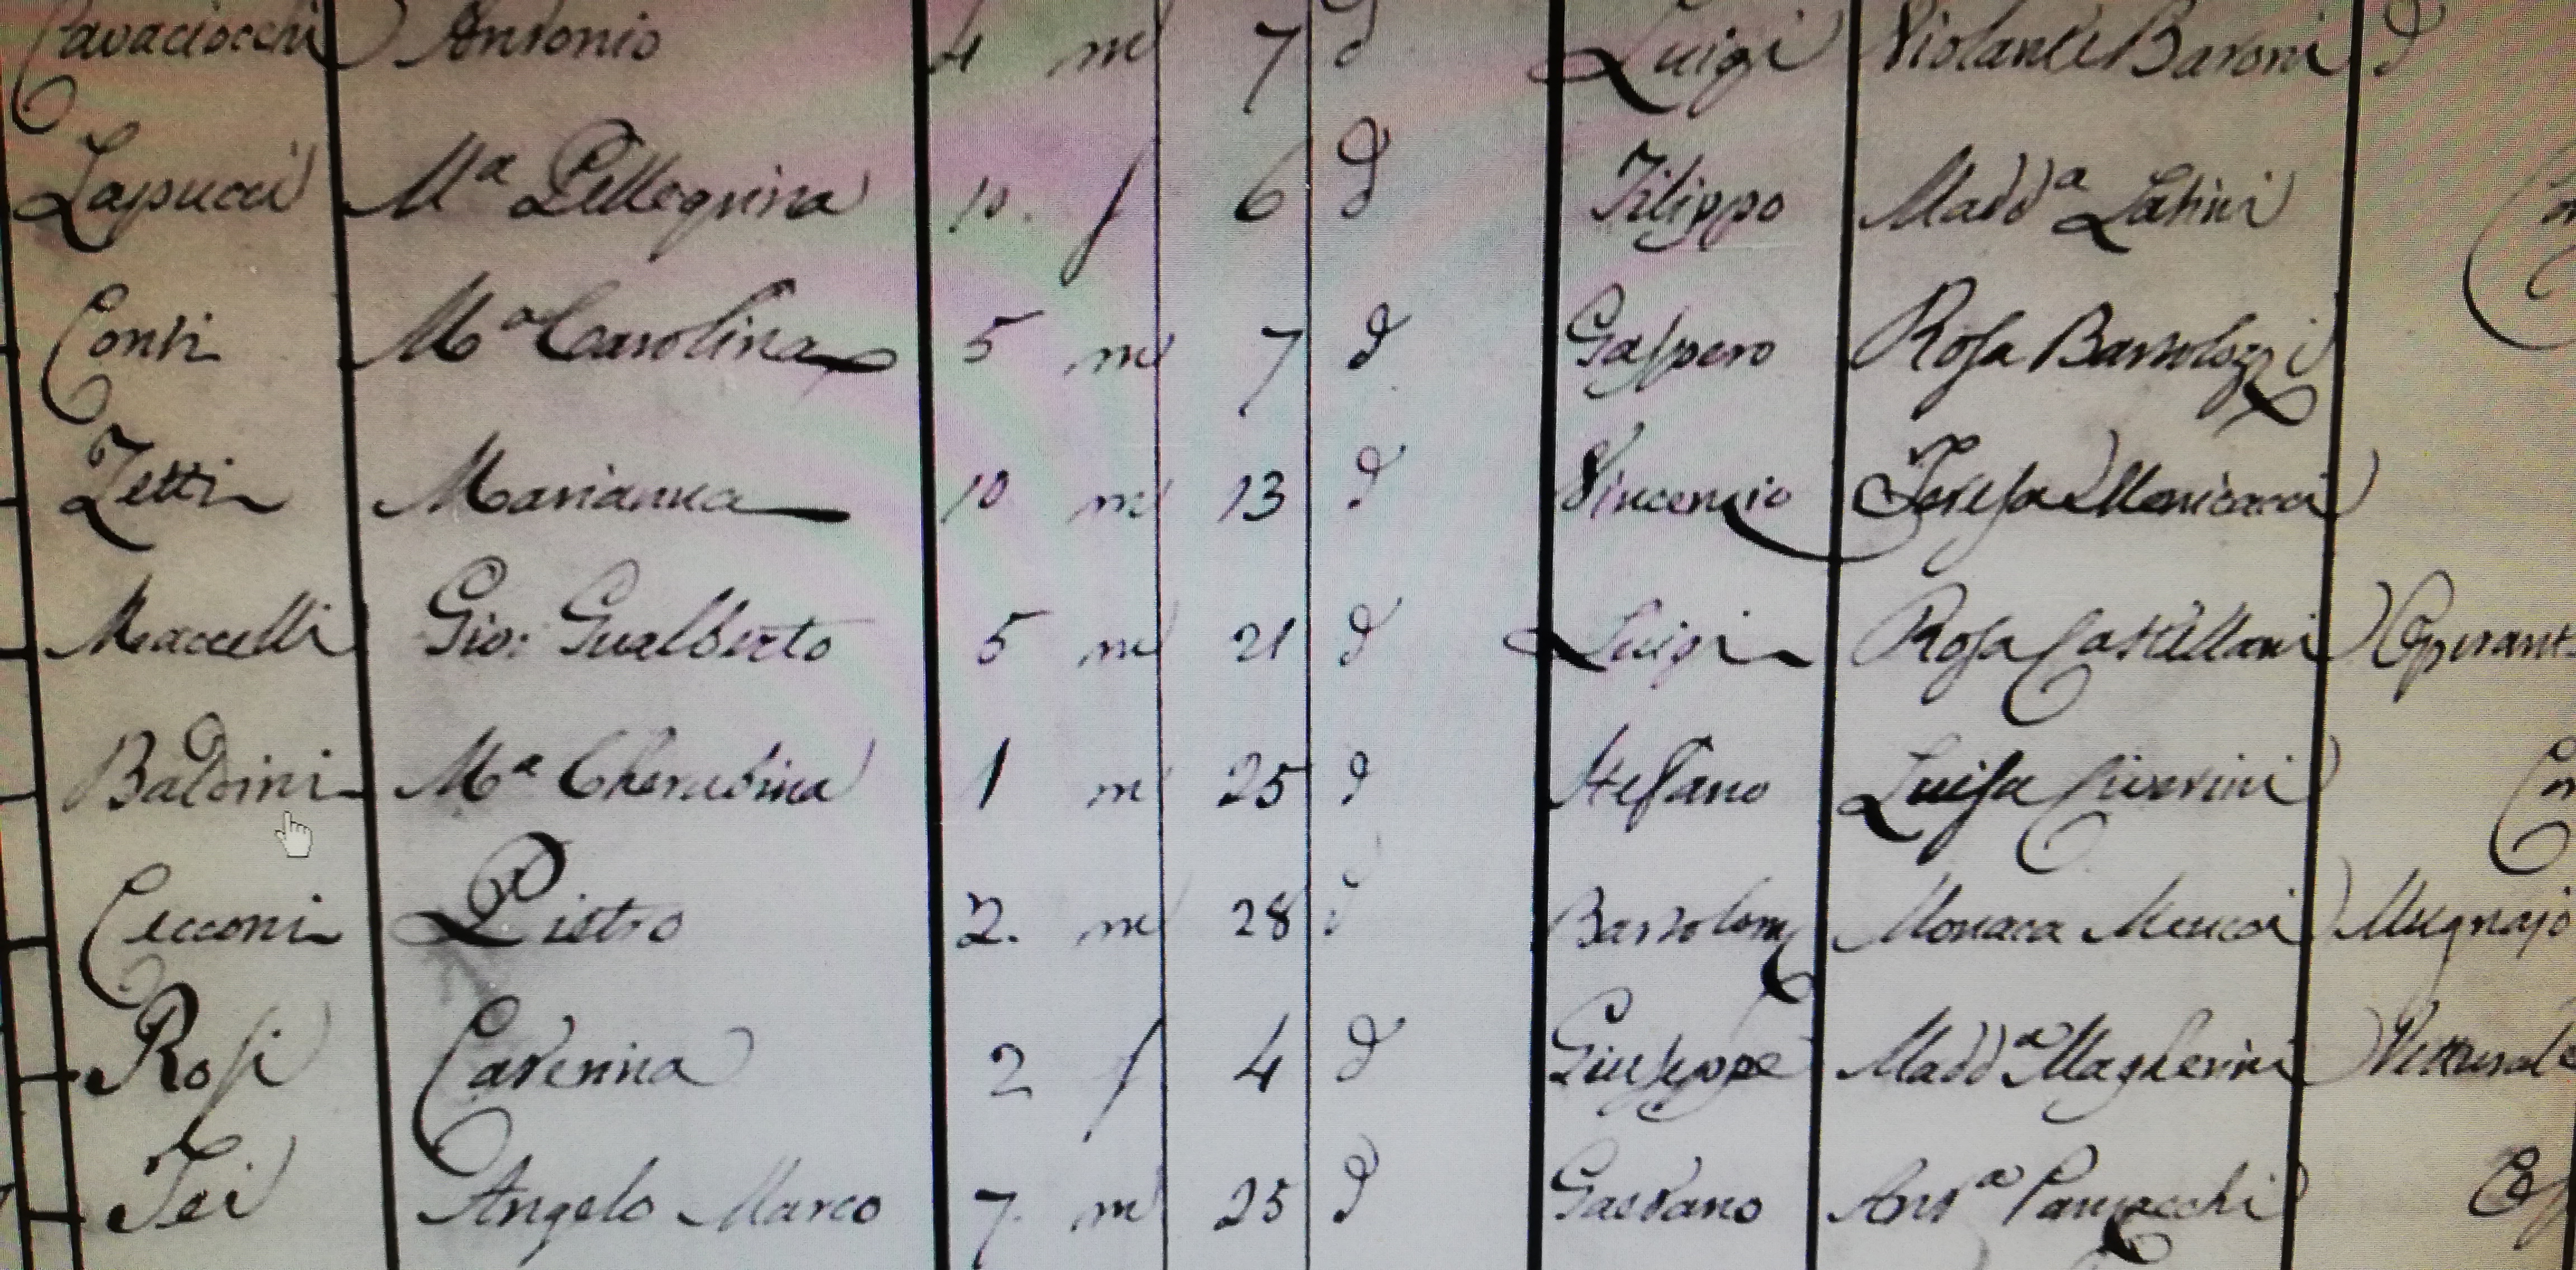 Cavaciocchi Antonio 4 m 7 d Luigi Violante Baroni d
Lapucci Mª Pellegrina 10. f 6 d Filippo Maddª Latini
Conti Mª Carolina 5 m 7 d Gaspero Rosa Bartolozzi
Zetti Marianna 10 m 13 d Vincenzio Teresa Monicacci
Maccelli Gio: Gualberto 5 m 21 d Luigi Rosa Castellani Operant
Baldini Mª Cherubina 1 m 25 d Stefano Luisa Civinini
Cecconi Pietro 2. m 28 d Bartolom Monaca Meucci Mugnajo
Rosi Caterina 2 f 4 d Giuseppe Maddª Magherini
Tei Angelo Marco 7. m 25 d Gaetano Antª